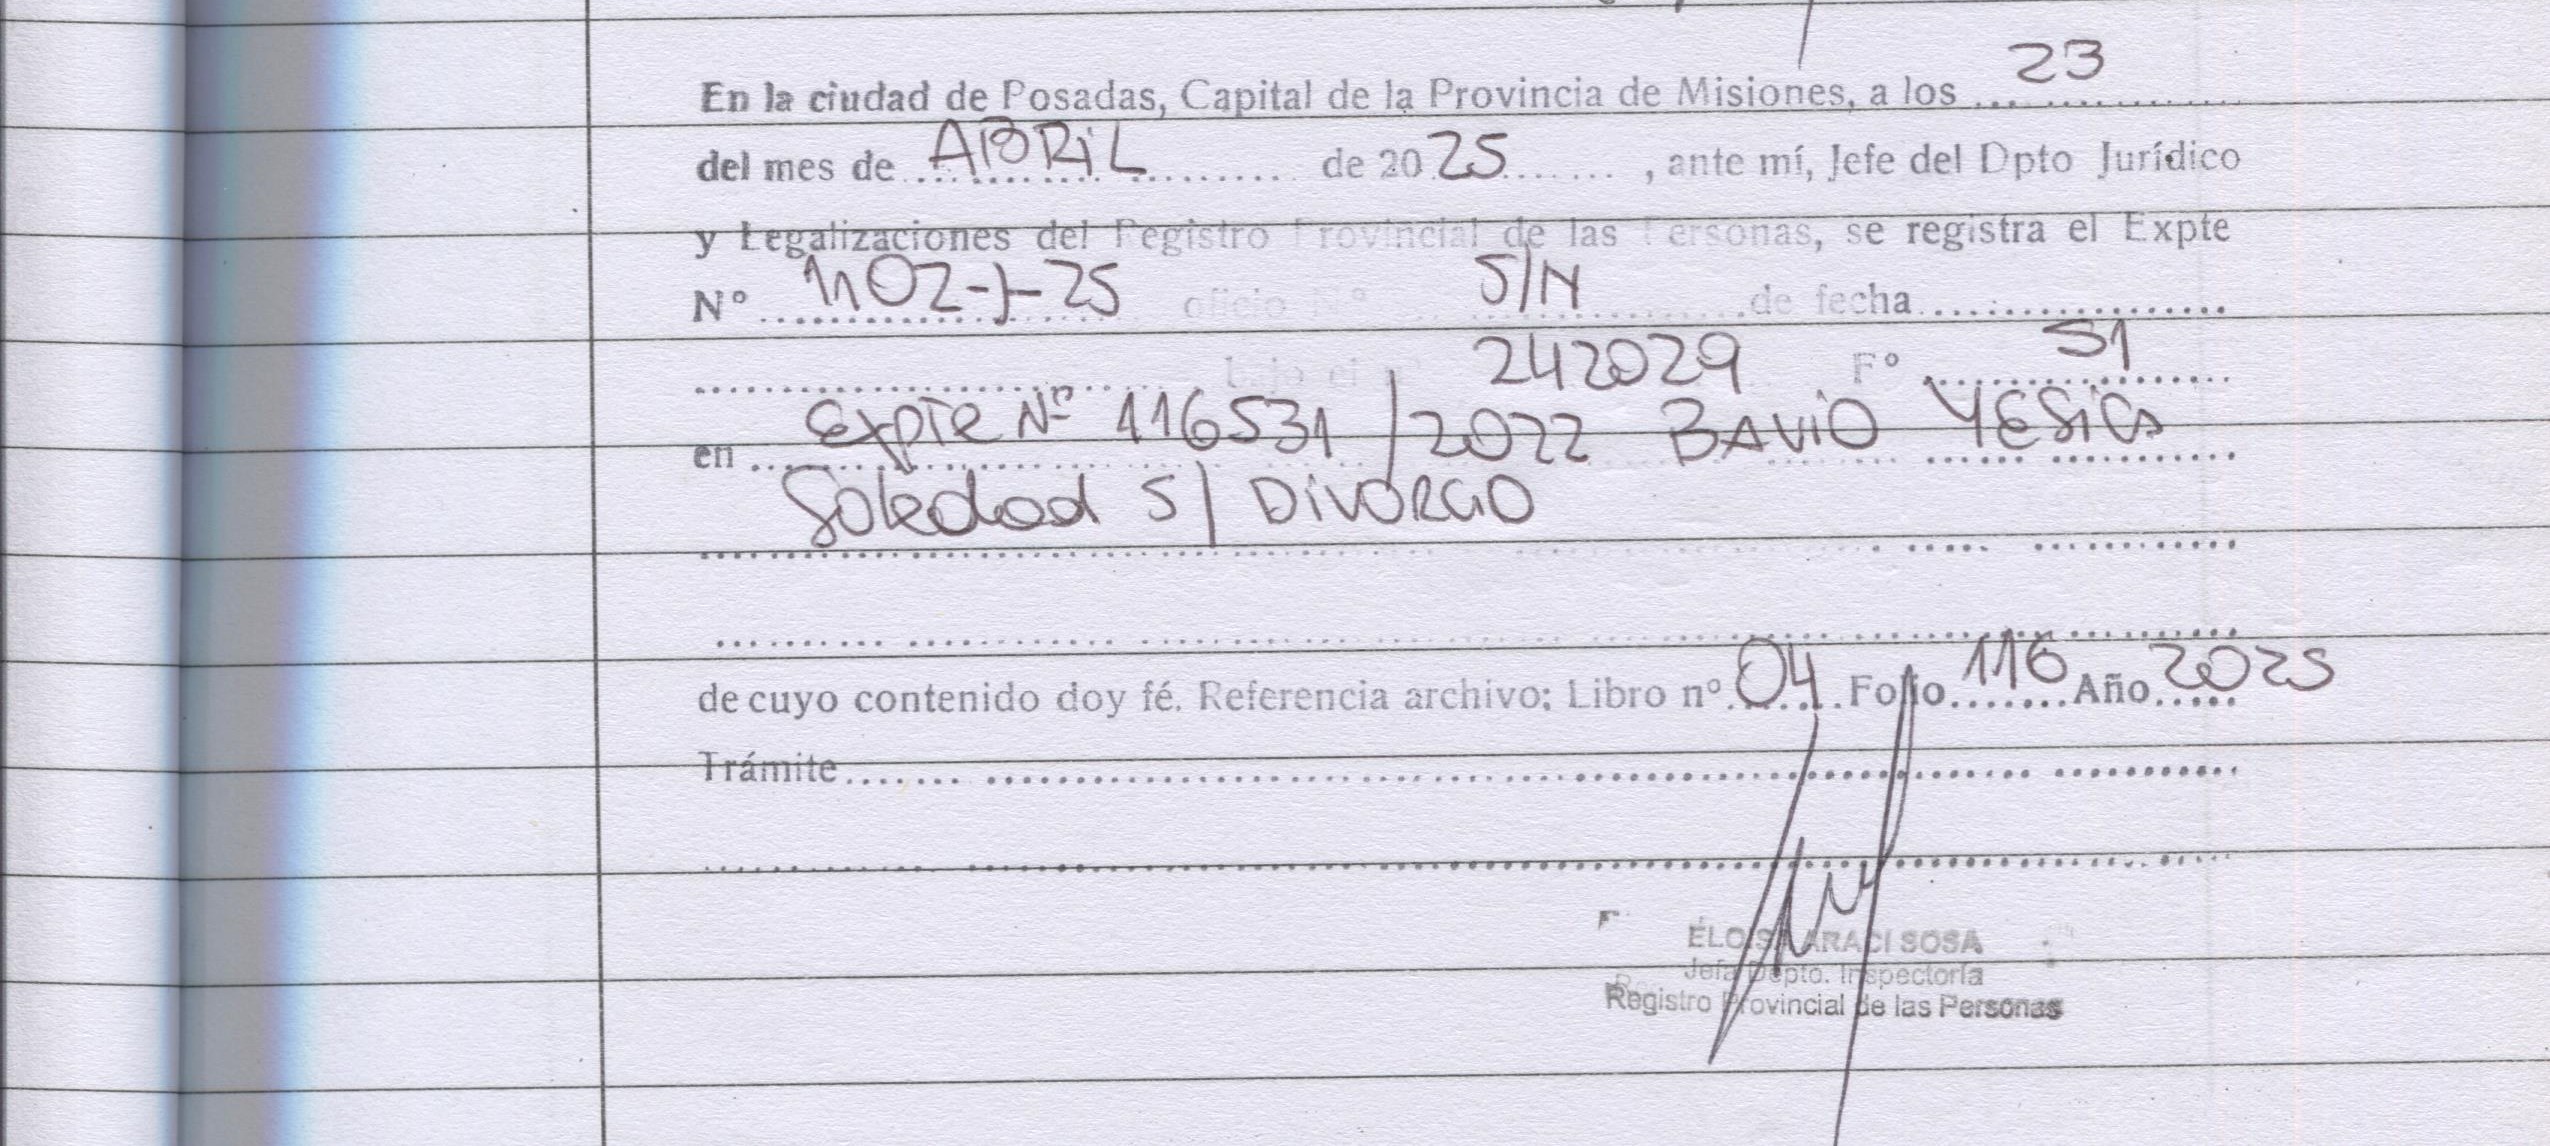 En la ciudad de Posadas, Capital de la Provincia de Misiones, a los 23
del mes de ABRIL de 2025, ante mí, Jefe del Dpto Jurídico
y Legalizaciones del Registro Provincial de las Personas, se registra el Expte
Nº 1102-J-25 oficio Nº S/N de fecha
bajo el 242029 Fº 51
en Expte Nº 116531/2022 BAVIO YESICA
Soledad S/ DIVORCIO
de cuyo contenido doy fé. Referencia archivo: Libro nº 04 Folio 116 Año 2025
Trámite
ELOISA ARACI SOSA
Jefa Depto. Inspectoría
Registro Provincial de las Personas